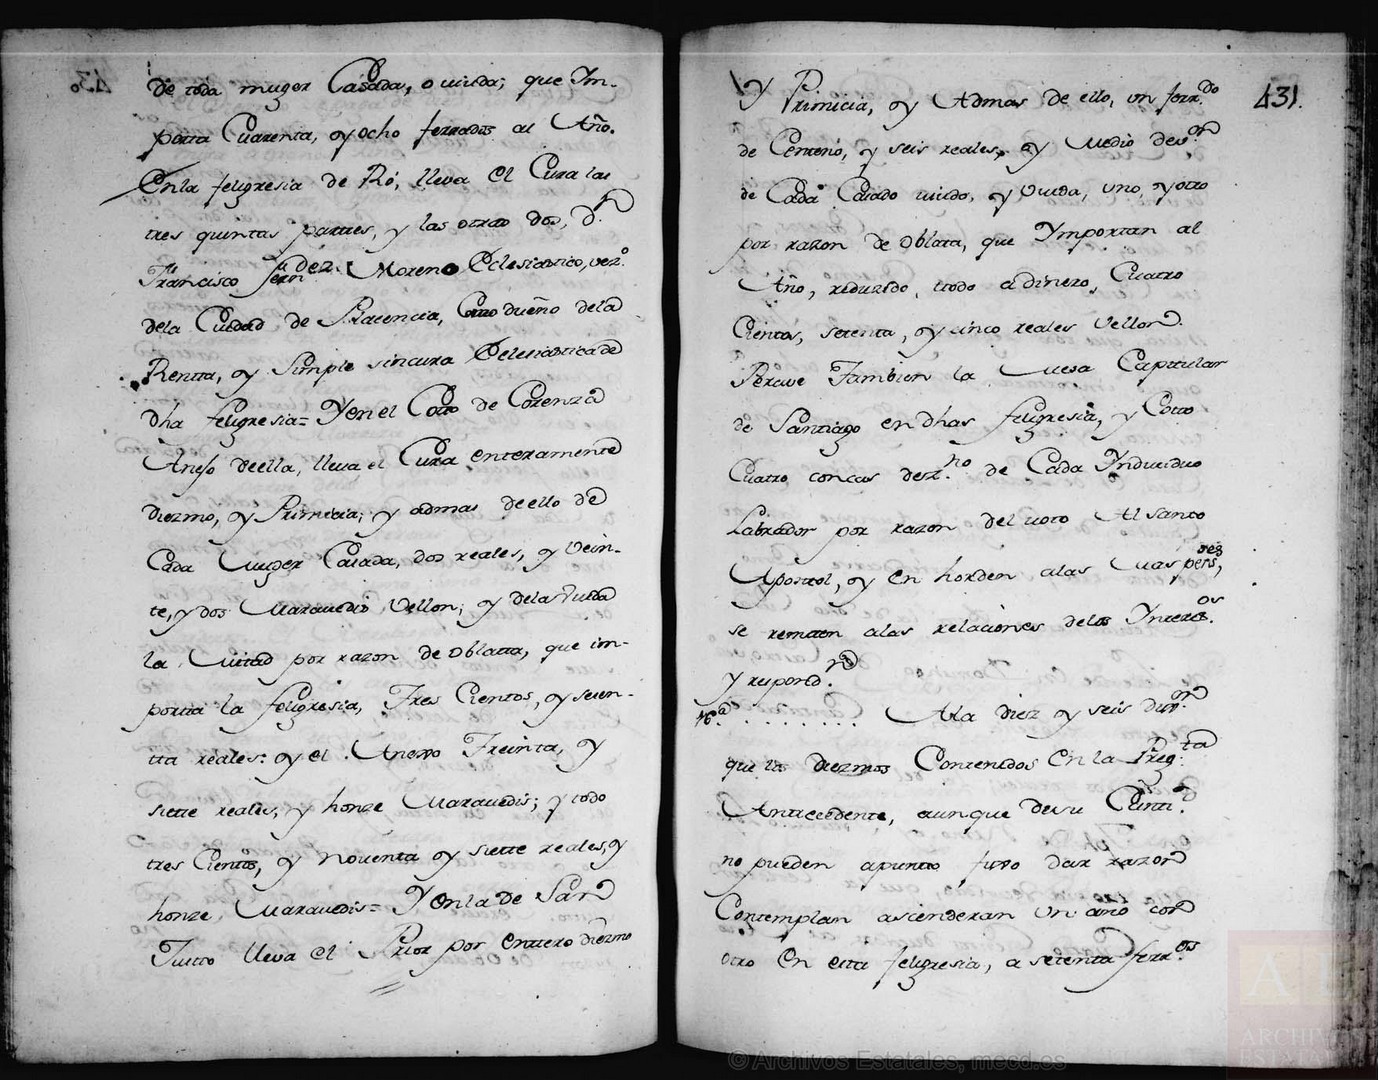 de toda muger Casada, o viuda; que Im-
porta Cuarenta, y ocho ferrados al Año.
En la feligresia de Ró, lleva el Cura las
tres quintas partes, y las otras dos, Dn
Francisco Fernandez Moreno Eclesiastico, vezº
dela Ciudad de Placencia, Como dueño dela
Rentta, y Simple sincura Eclesiastica de
dha feligresia= Y en el Coto de Corenza
Anejo de ella, lleva el Cura enteramente
diezmo, y Primicia; y admas de ello de
Cada Muger Casada, dos reales, y vein-
te, y dos Maravedis Vellon; y de las viuda
la Mitad por razon de oblatta, que im-
portta la feligresia, Tres Cientos, y sesen-
tta reales: y el Anexo Treinta, y
siette reales, y honze Maravedis; y todo
tres Cientos, y noventa y siette reales, y
honze Maravedis= Y en la de San
Justto lleva el Prior por enttero diezmo
431.
Y Primicia, y Admas de ello, un ferrdo
de Centeno, y seis reales, y Medio de von
de Cada Casado viudo, y Viuda, uno, y otro
por razon de oblata, que Importan al
Año, reduzido, ttodo a dinero, Cuatro
Cientos, setenta, y cinco reales Vellon.
Percive Tambien la Mesa Capitular
de Santiago en dhas feligresia, y Coto
Cuatro concas de zno de Cada Individuo
Labrador por razon del voto Al Santo
Apostol, y en horden alas Mas persnes,
se remiten alas relaciones delos Interesos.
y respondn
16ª . . . . . . . . A la diez y seis Dixon
que los diezmos Contenidos En la Pregta
Antecedente, aunque de su Cantid
no pueden apunto fixo dar razon
Contemplan ascenderan un año con
otro En esta feligresia, a setenta ferros
© Archivos Estatales, mecd.es